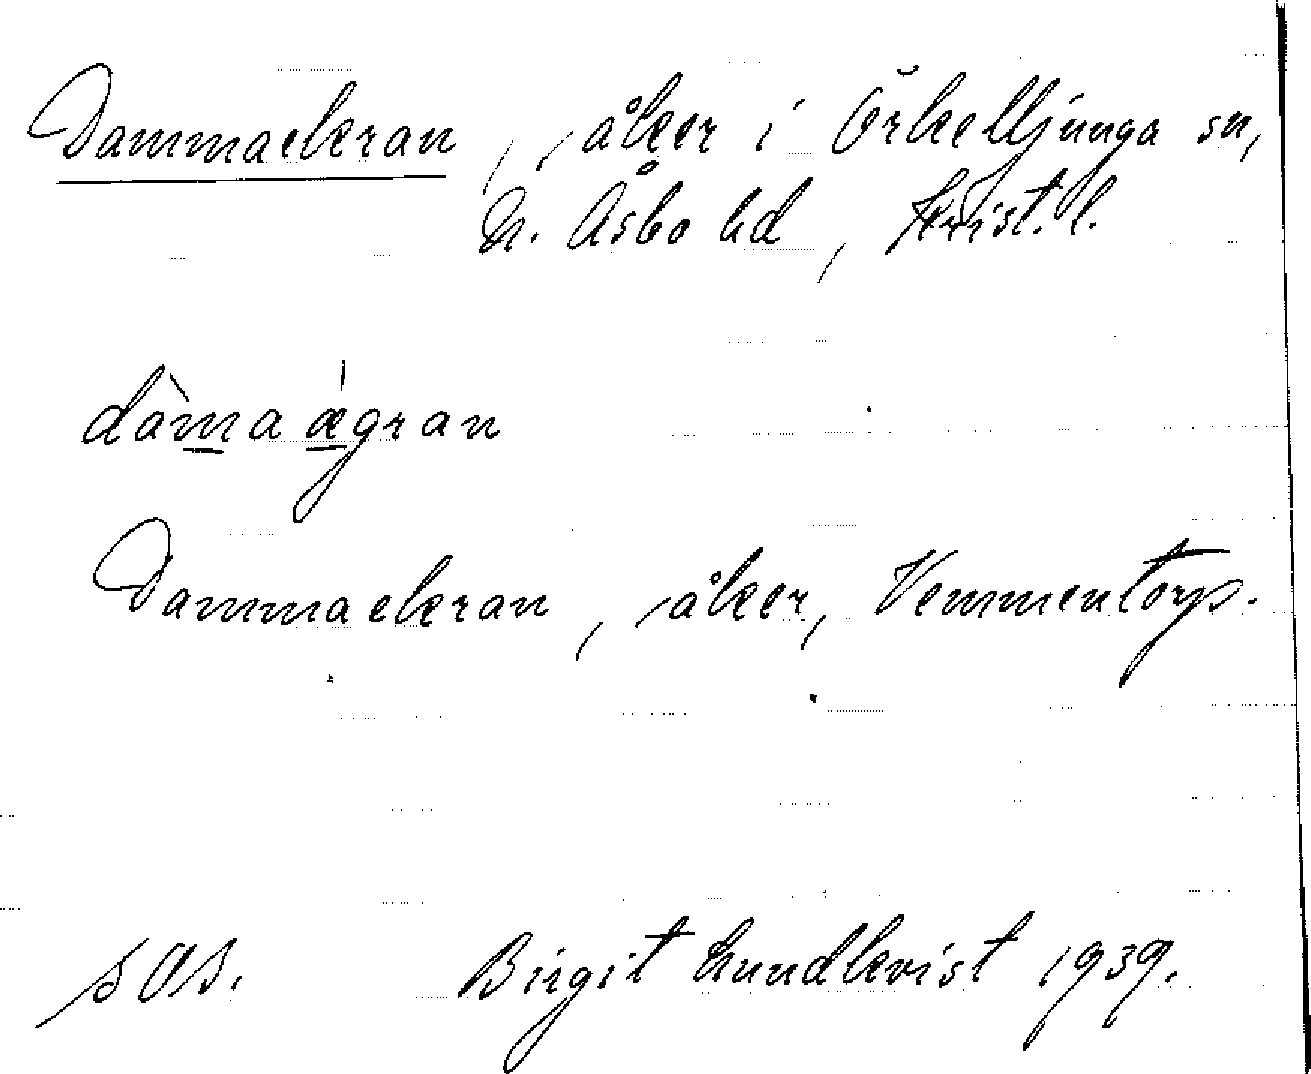 Dammaekran, åker i Örkelljunga sn,
N. Åsbo hd, Krist. l.
dàmaægran
Dammaekran, åker, Vemmentorp.
SOS. Birgit Lundkvist 1939.